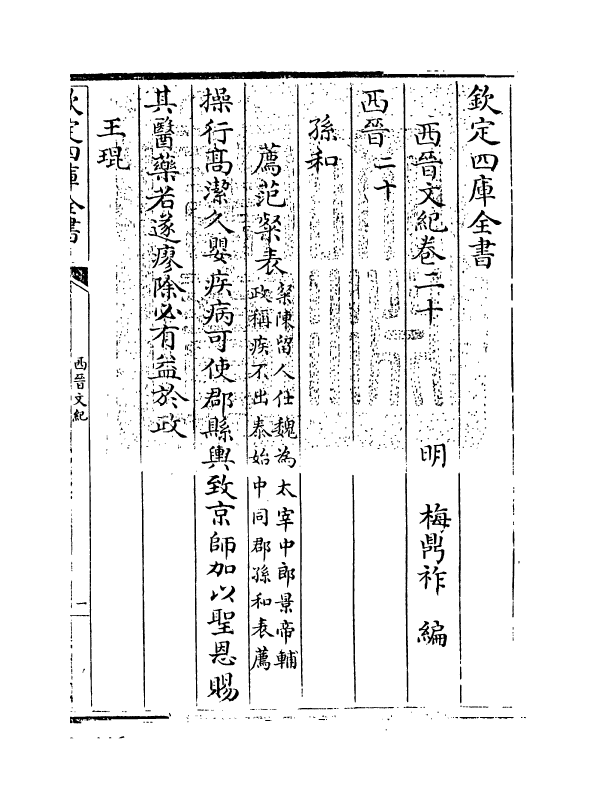 欽定四庫全書
西晉文紀卷二十
明　梅鼎祚　編
西晉二十
孫和
薦范粲表
粲陳留人仕魏為太宰中郎景帝輔
政稱疾不出泰始中同郡孫和表薦
操行高潔久嬰疾病可使郡縣輿致京師加以聖恩賜
其醫藥若遂瘳除必有益於政
王琨
欽定四庫全書
西晉文紀
一